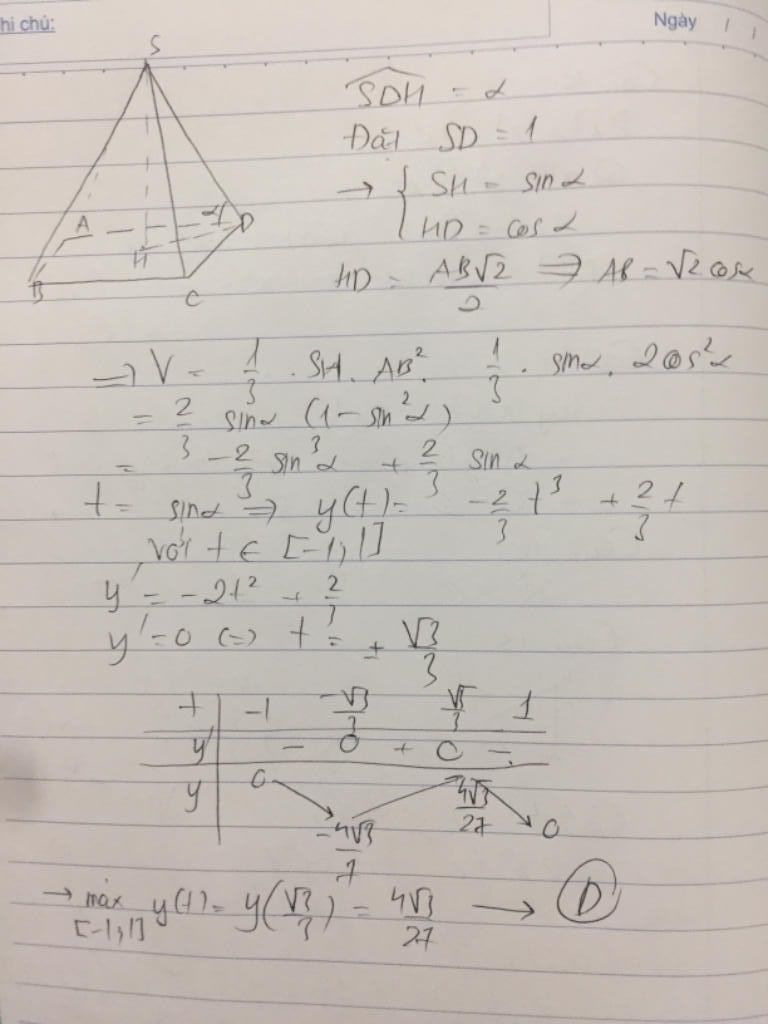 hi chú:
Ngày
S
A
α
D
H
B
C
SDH = α
Đặt SD = 1
→ { SH = sinα
HD = cosα
HD = AB√2/2 ⇒ AB = √2 cosα
⇒ V = 1/3 . SH . AB². 1/3 . sinα. 2cos²α
= 2/3 sinα (1 - sin²α)
= -2/3 sin³α + 2/3 sinα
t = sinα ⇒ y(t) = -2/3 t³ + 2/3 t
với t ∈ [-1,1]
y' = -2t² + 2/3
y' = 0 (=) t = ± √3/3
t -1 -√3/3 √3/3 1
y' - 0 + 0 -
y 0 -4√3/7 4√3/27 0
→ max y(t) = y(√3/3) = 4√3/27 → D
[-1,1]